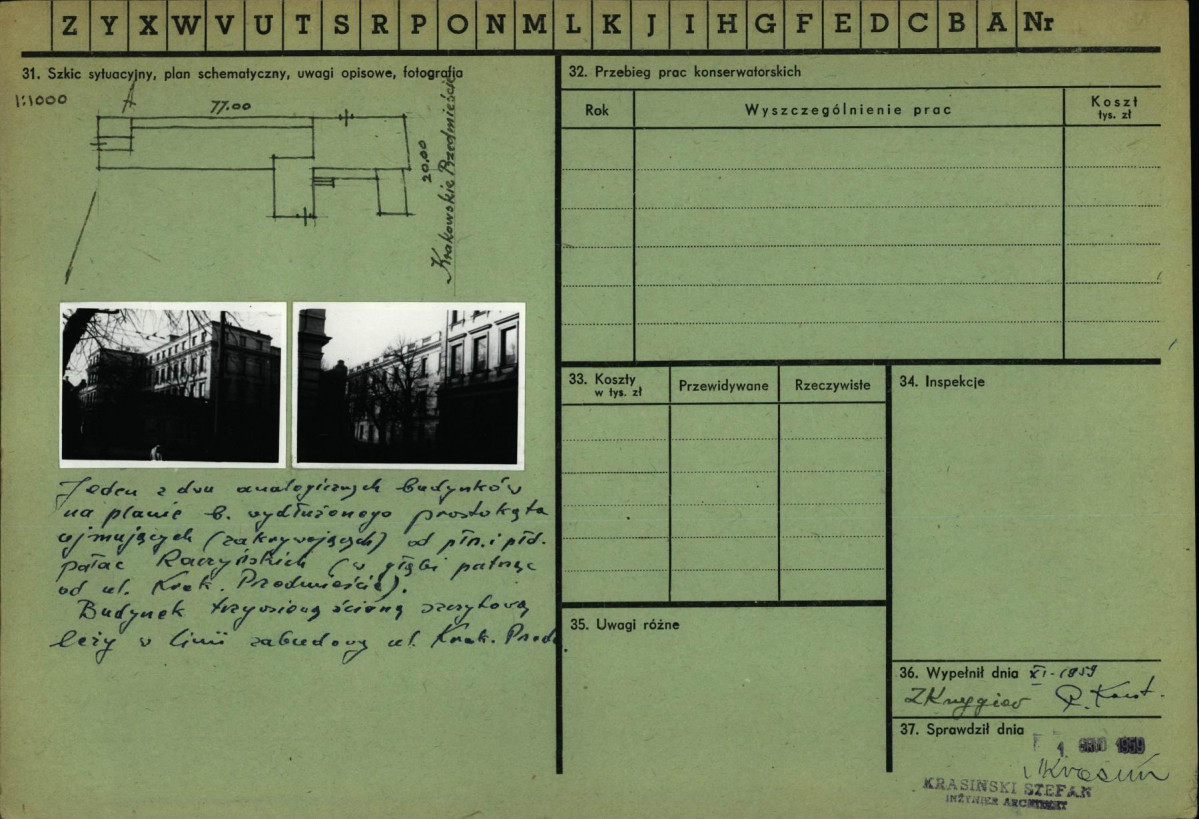 Z Y X W V U T S R P O N M L K J I H G F E D C B A Nr
31. Szkic sytuacyjny, plan schematyczny, uwagi opisowe, fotografia
1:1000
77.00
20.00
Krakowskie Przedmieście
Jeden z dwu analogicznych budynków
na planie b. wydłużonego prostokąta
ujmujących (zakrywających) od płn. i płd.
pałac Raczyńskich (w głębi patrząc
od ul. Krak. Przedmieście).
Budynek trzywsiową ścianą szczytową
leży w linii zabudowy ul. Krak. Przed.
32. Przebieg prac konserwatorskich
Rok
Wyszczególnienie prac
Koszt
tys. zł
33. Koszty
w tys. zł
Przewidywane
Rzeczywiste
34. Inspekcje
35. Uwagi różne
36. Wypełnił dnia XI-1959
37. Sprawdził dnia
1. GRUD 1959
KRASIŃSKI STEFAN
INŻYNIER ARCHITEKT